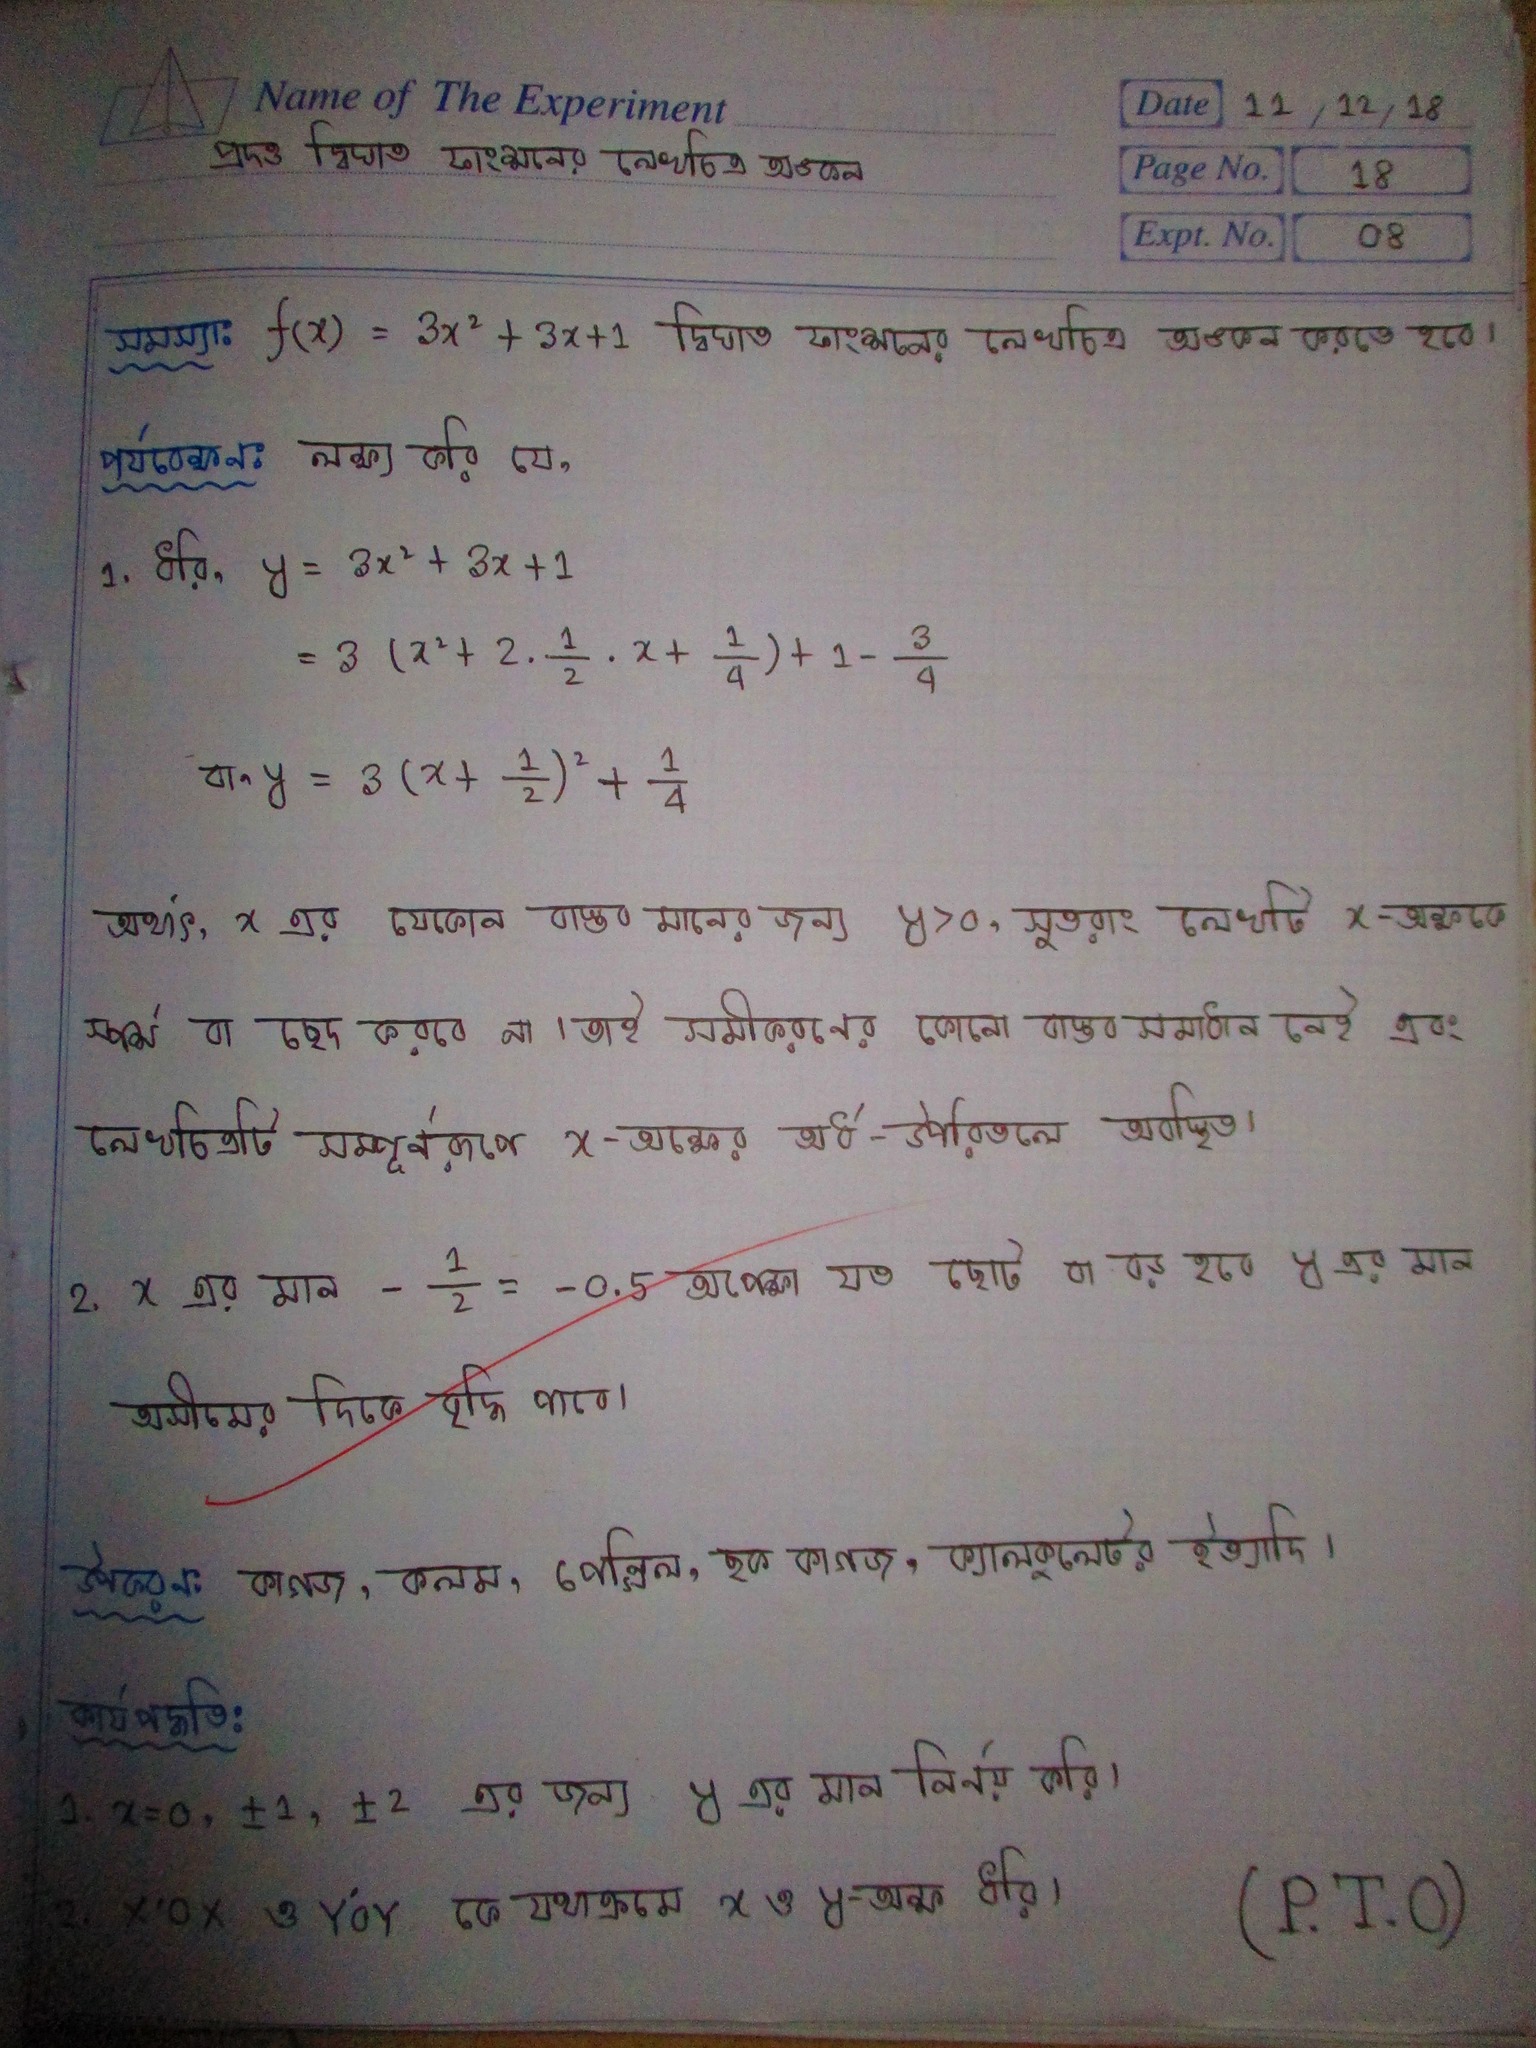 Name of The Experiment
প্রদত্ত দ্বিঘাত ফাংশনের লেখচিত্র অঙ্কন
Date 11/12/18
Page No. 18
Expt. No. 08
সমস্যাঃ f(x) = 3x² + 3x+1 দ্বিঘাত ফাংশনের লেখচিত্র অঙ্কন করতে হবে।
পর্যবেক্ষনঃ লক্ষ্য করি যে,
1. ধরি, y = 3x² + 3x + 1
= 3 (x² + 2 . 1/2 . x + 1/4) + 1 - 3/4
বা, y = 3 (x + 1/2)² + 1/4
অর্থাৎ, x এর যেকোন বাস্তব মানের জন্য y>0, সুতরাং লেখটি x-অক্ষকে
স্পর্শ বা ছেদ করবে না। তাই সমীকরনের কোনো বাস্তব সমাধান নেই এবং
লেখচিত্রটি সম্পূর্নরূপে x-অক্ষের অর্ধ-উপরিতলে অবস্থিত।
2. x এর মান - 1/2 = -0.5 অপেক্ষা যত ছোট বা বড় হবে y এর মান
অসীমের দিকে বৃদ্ধি পাবে।
উপকরনঃ কাগজ, কলম, পেন্সিল, ছক কাগজ, ক্যালকুলেটর ইত্যাদি।
কার্যপদ্ধতিঃ
1. x=0, ±1, ±2 এর জন্য y এর মান নির্নয় করি।
2. X'OX ও Y'OY কে যথাক্রমে x ও y-অক্ষ ধরি।
(P.T.O)